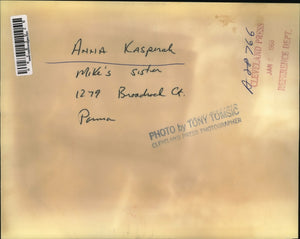 ANNA KASPERAK
Mike's sister
1279 Broadrock Ct.
Parma
PHOTO by TONY TOMSIC
CLEVELAND PRESS PHOTOGRAPHER
CLEVELAND PRESS
JAN
REFERENCE DEPT.